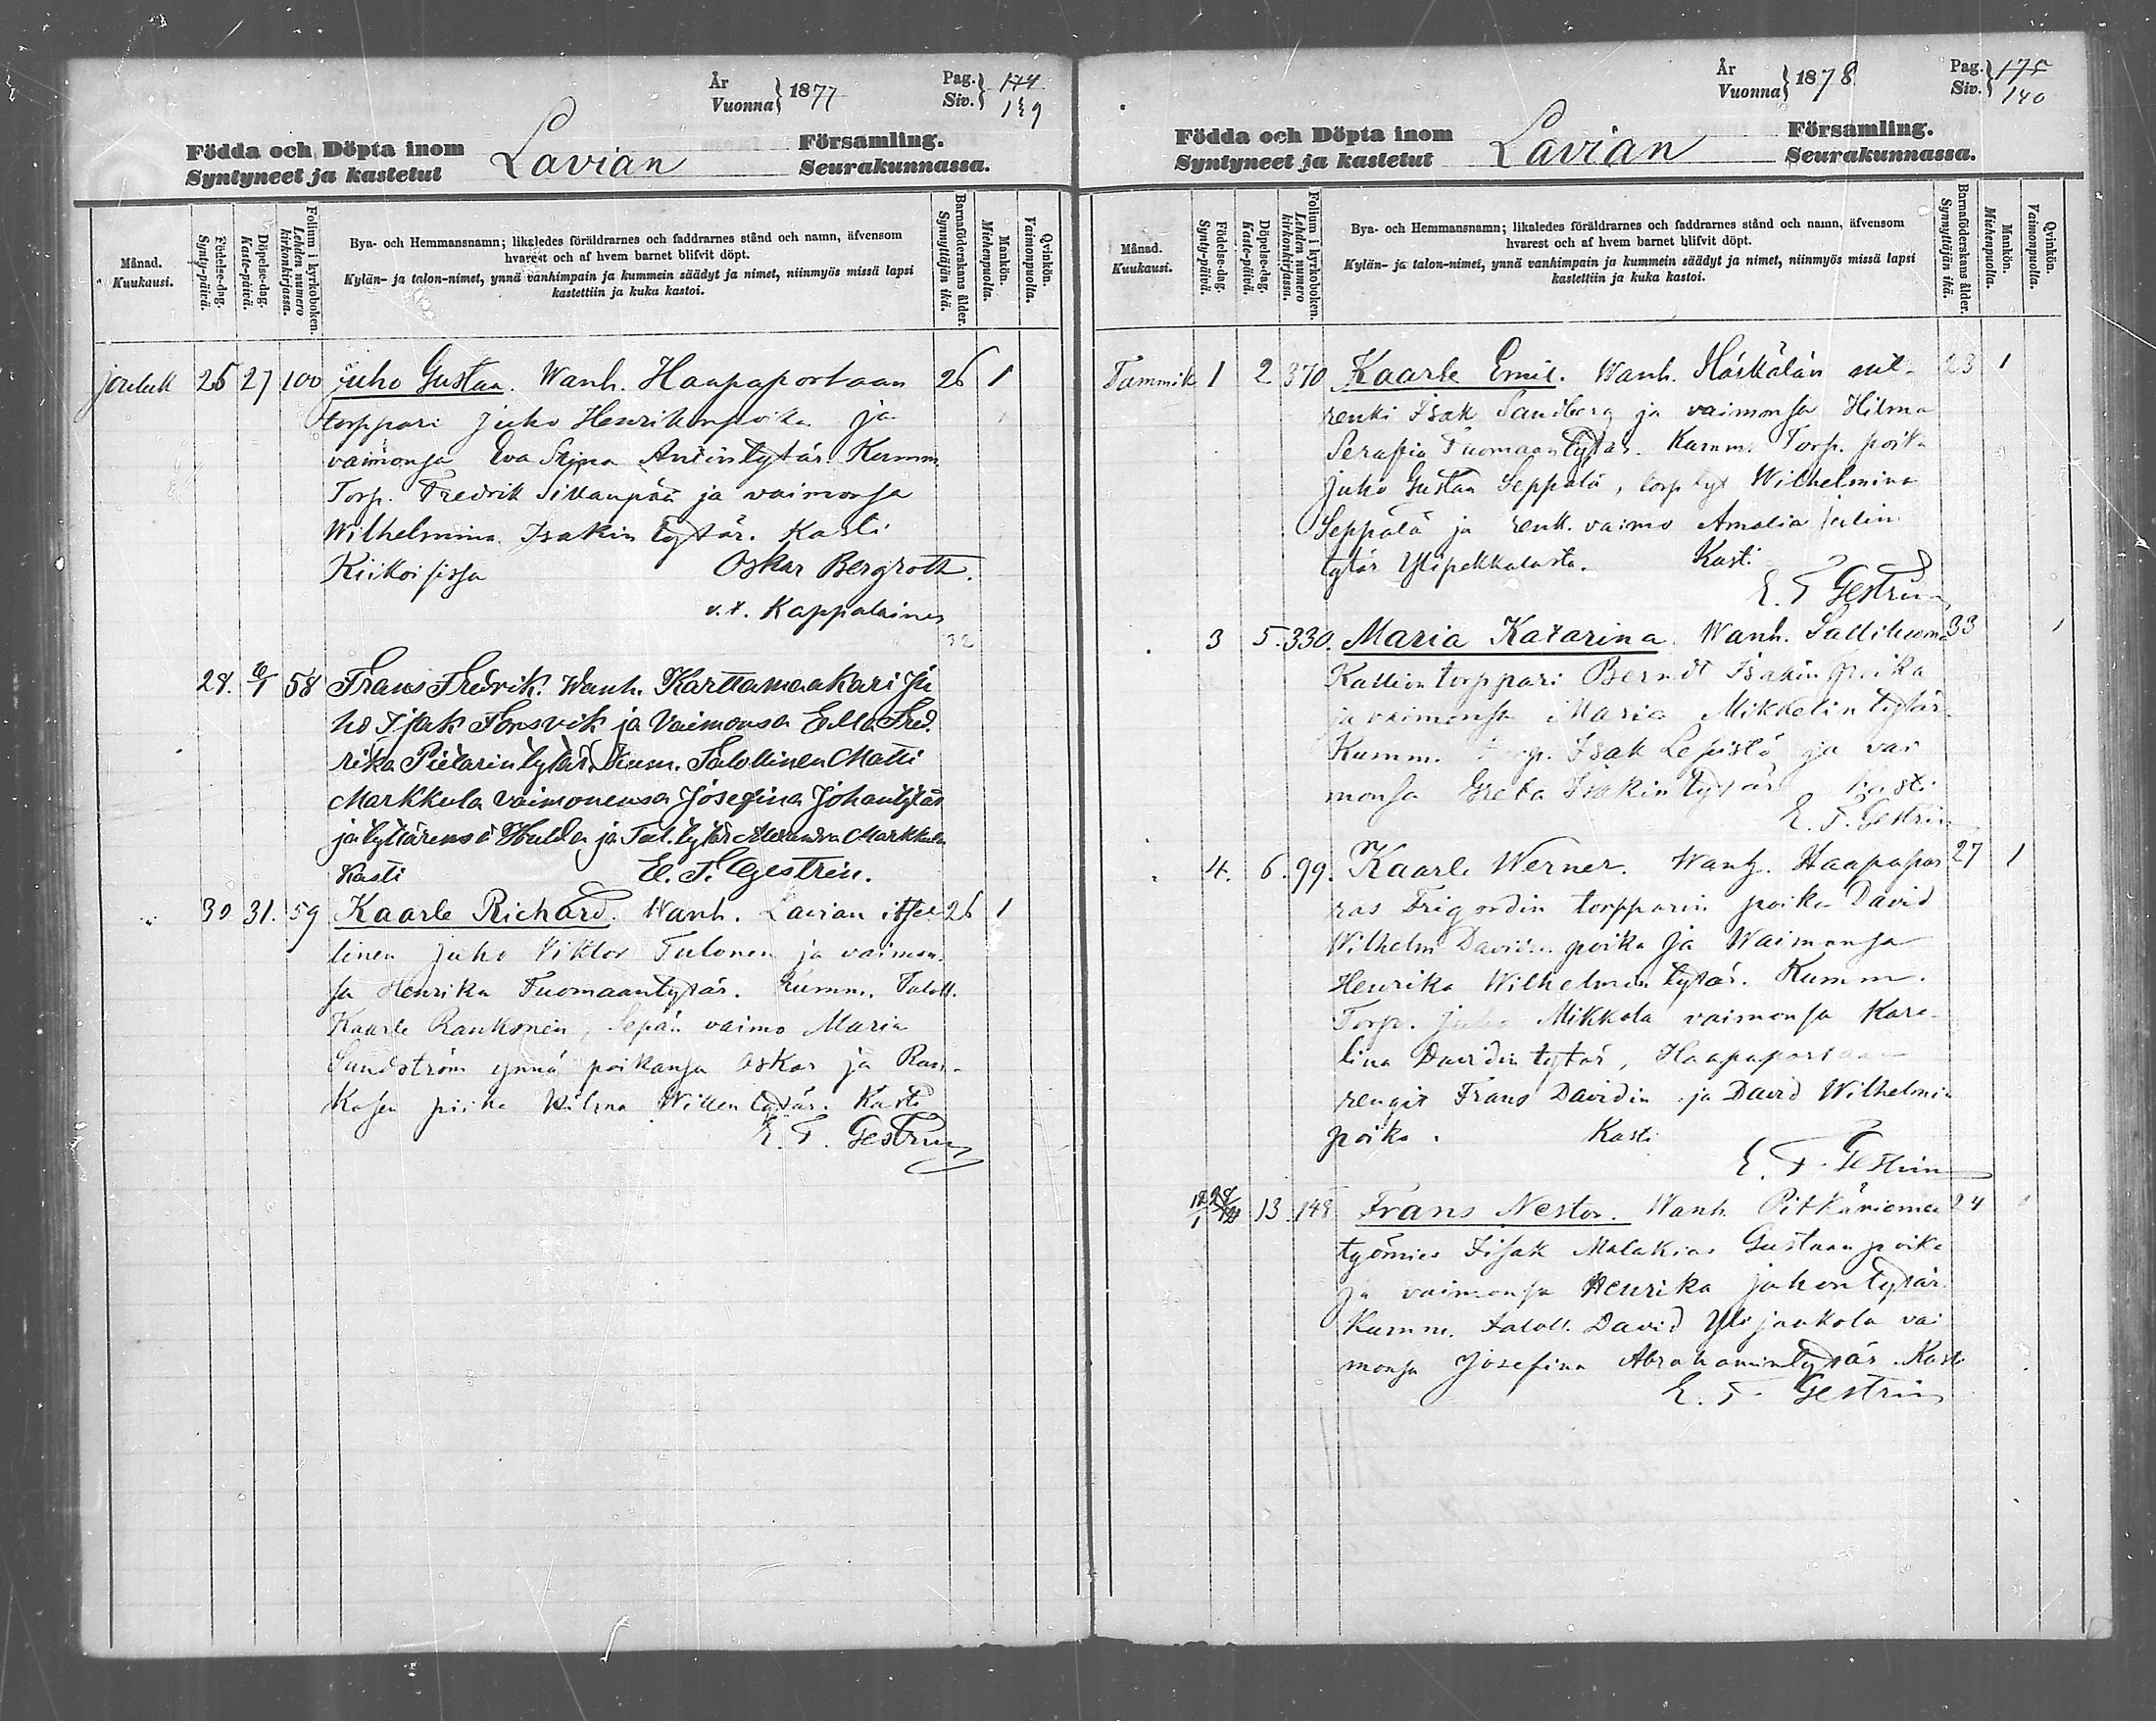 År
Vuonna } 1877
Pag.
Siv. } 174
139
Födda och Döpta inom
Syntyneet ja kastetut
Lavian
Församling.
Seurakunnassa.
Månad.
Kuukausi.
Födelse-dag.
Synty-päivä.
Döpelse-dag.
Kaste-päivä.
Folium i kyrkoboken.
Lehden numero
kirkonkirjassa.
Bya- och Hemmansnamn; likaledes föräldrarnes och faddrarnes stånd och namn, äfvensom
hvarest och af hvem barnet blifvit döpt.
Kylän- ja talon-nimet, ynnä vanhimpain ja kummein säädyt ja nimet, niinmyös missä lapsi
kastettiin ja kuka kastoi.
Barnaföderskans ålder.
Synnyttäjän ikä.
Mankön.
Miehenpuolta.
Qvinkön.
Vaimonpuolta.
jouluk 25 27 100 Juho Gustaa. Wanh. Haapaportaan 26 1
torppari Juho Henrikinpoika ja
vaimonsa Eva Stina Antintytär. Kumm.
Torp. Fredrik Sillanpää ja vaimonsa
Wilhelmina Isakin tytär. Kasti
Kiikoisissa Oskar Bergroth.
v.t. Kappalainen
32
28. 6/1 58 Frans Fredrik. Wanh. Karttamaakari Ju
ho Isak Forsvik ja Vaimonsa Eva Fred.
rika Pietarintytär. Kum. Talollinen Matti
Markkula vaimonensa Josefina Johantytär
ja tyttärensä Hulda ja Tal. tytär Alexandra Markkula
Kasti E. F. Gestrin.
" 30 31. 59 Kaarle Richard. Wanh. Lavian itsel 26 1
linen Juho Viktor Tulonen ja vaimon
sa Henrika Tuomaantytär. Kumm. Taloll.
Kaarle Raukonen, Sepän vaimo Maria
Sundström ynnä poikansa Oskar ja Rau-
kosen piika Wilhelmina Willen tytär. Kasti
E. F. Gestrin
År
Vuonna } 1878.
Pag.
Siv. } 175
140
Födda och Döpta inom
Syntyneet ja kastetut
Lavian
Församling.
Seurakunnassa.
Månad.
Kuukausi.
Födelse-dag.
Synty-päivä.
Döpelse-dag.
Kaste-päivä.
Folium i kyrkoboken.
Lehden numero
kirkonkirjassa.
Bya- och Hemmansnamn; likaledes föräldrarnes och faddrarnes stånd och namn, äfvensom
hvarest och af hvem barnet blifvit döpt.
Kylän- ja talon-nimet, ynnä vanhimpain ja kummein säädyt ja nimet, niinmyös missä lapsi
kastettiin ja kuka kastoi.
Barnaföderskans ålder.
Synnyttäjän ikä.
Mankön.
Miehenpuolta.
Qvinkön.
Vaimonpuolta.
Tammik 1 2 370 Kaarle Emil. Wanh. Häskälän 23 1
renki Isak Sandberg ja vaimonsa Hilma
Serafia Tuomaantytär. Kumm. Torp. poika
Juho Gustaa Seppälä, torp. tyt Wilhelmina
Seppälä ja renk. vaimo Amalia
tytär Ylipekkalasta. Kasti
E. F. Gestrin
3 5. 330. Maria Katarina. Wanh. 33 1
Kallion torppari Berndt Isakin poika
ja vaimonsa Maria Mikkelin tytär.
Kumm. Torp. Isak Lepistö ja vai
monsa Greta Isakin tytär Kasti
E. F. Gestrin
4. 6. 99. Kaarle Werner. Wanh. Haapapor 27 1
ras torpparin poika David
Wilhelm Davidin poika ja Waimonsa
Henrika Wilhelmin tytär. Kumm.
Torp. Juho Mikkola vaimonsa Karo-
lina Davidin tytär, Haapaportaan
rengit Frans Davidin ja David Wilhelmin
poika. Kasti
E. F. Gestrin
12/1 28/12 13. 148 Frans Nestor. Wanh. 24 1
työmies Iisak Malakias Gustaan poika
ja vaimonsa Henrika Johontytär.
Kumm. taloll. David Ylijaakola vai
monsa Josefina Abrahamintytär. Kasti
E. F. Gestrin